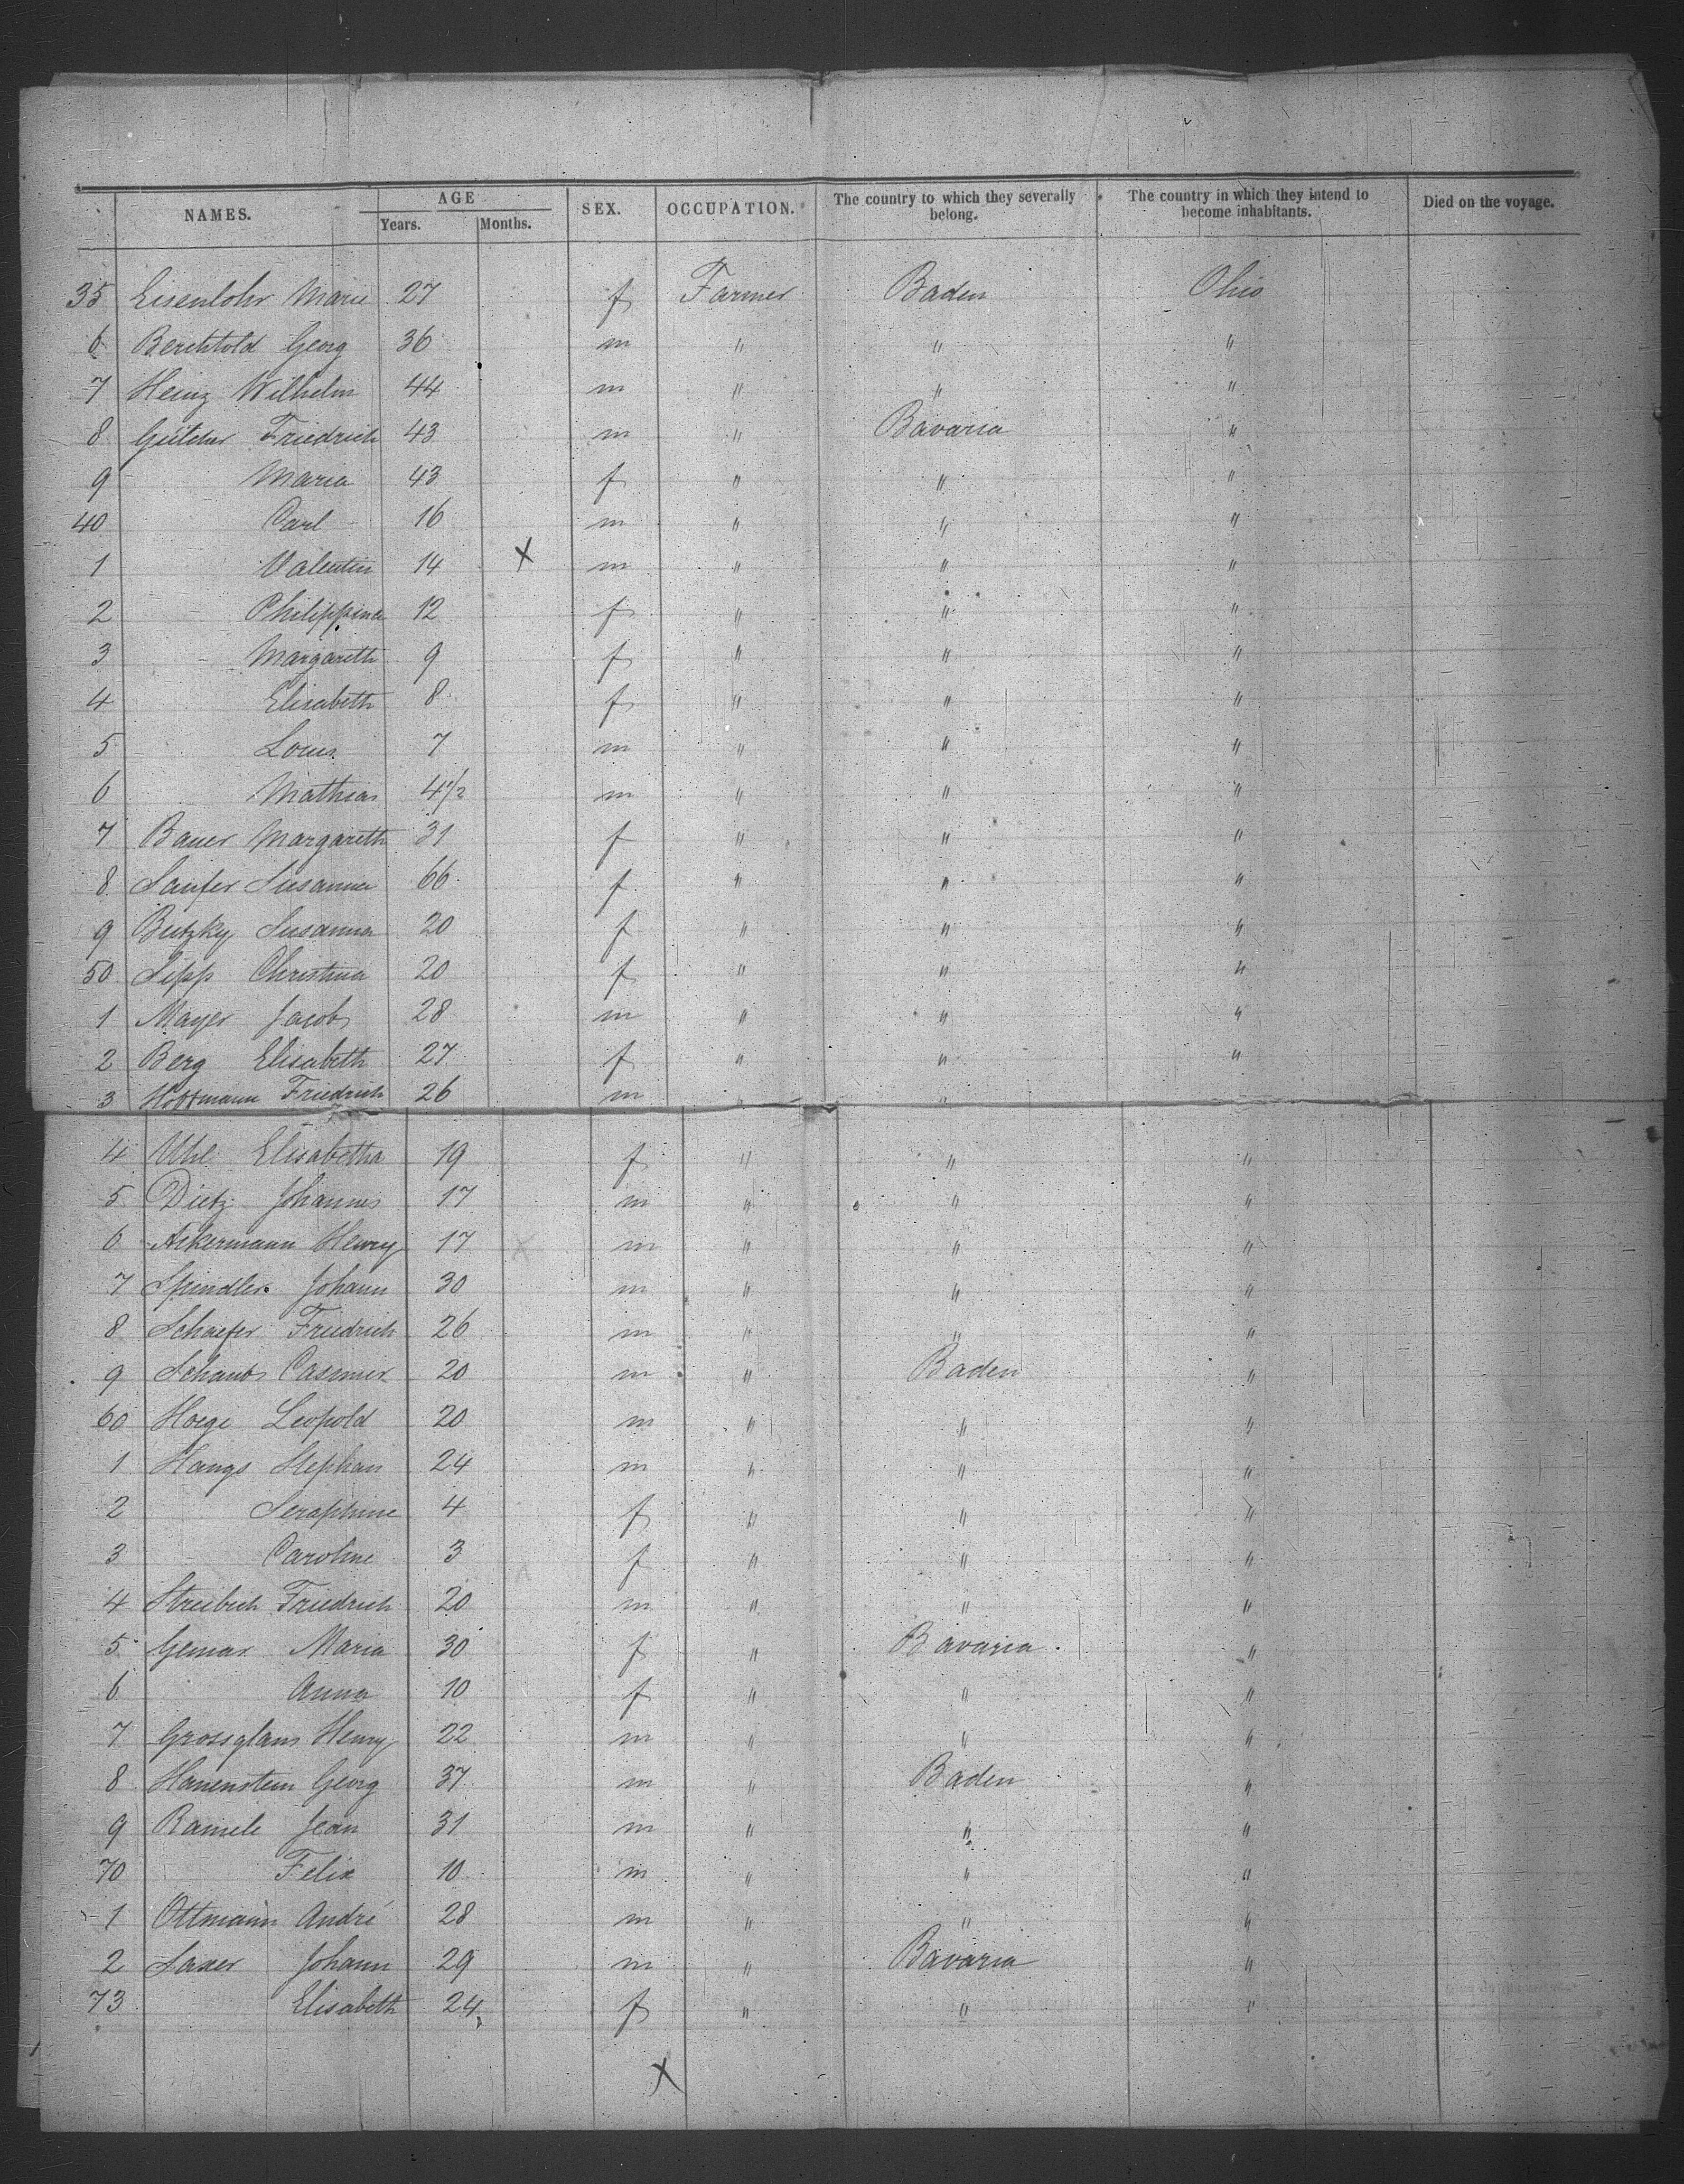 NAMES. AGE Years. Months. SEX. OCCUPATION. The country to which they severally belong. The country in which they intend to become inhabitants. Died on the voyage.
35 Eisenlohr Marie 27 f Farmer Baden Ohio
6 Berchtold Georg 36 m " " "
7 Heinz Wilhelm 44 m " " "
8 Friedrich 43 m " Bavaria "
9 Maria 43 f " " "
40 Carl 16 m " " "
1 Valentin 14 X m " " "
2 Philippina 12 f " " "
3 Margareth 9 f " " "
4 Elisabeth 8 f " " "
5 Louis 7 m " " "
6 Mathias 4 1/2 m " " "
7 Bauer Margareth 31 f " " "
8 Saufer Susanna 66 f " " "
9 Butzky Susanna 20 f " " "
50 Sipp Christina 20 f " " "
1 Mayer Jacob 28 m " " "
2 Berg Elisabeth 27 f " " "
3 Friedrich 26 m " "
4 Uhl Elisabetha 19 f " " "
5 Dietz Johannes 17 m " " "
6 Ackermann Henry 17 X m " " "
7 Spindler Johann 30 m " " "
8 Schaefer Friedrich 26 m " " "
9 Schaub Casimir 20 m " Baden "
60 Hoegi Leopold 20 m " " "
1 Hangs Stephan 24 m " " "
2 Seraphine 4 f " " "
3 Caroline 3 f " " "
4 Streibich Friedrich 20 m " " "
5 Gemar Maria 30 f " Bavaria "
6 Anna 10 f " " "
7 Grossglans Henry 22 m " " "
8 Hauenstein Georg 37 m " Baden "
9 Ramele Jean 31 m " " "
70 Felix 10 m " " "
1 Ottmann André 28 m " " "
2 Saxer Johann 29 m " Bavaria "
73 Elisabeth 24 f " " "
X